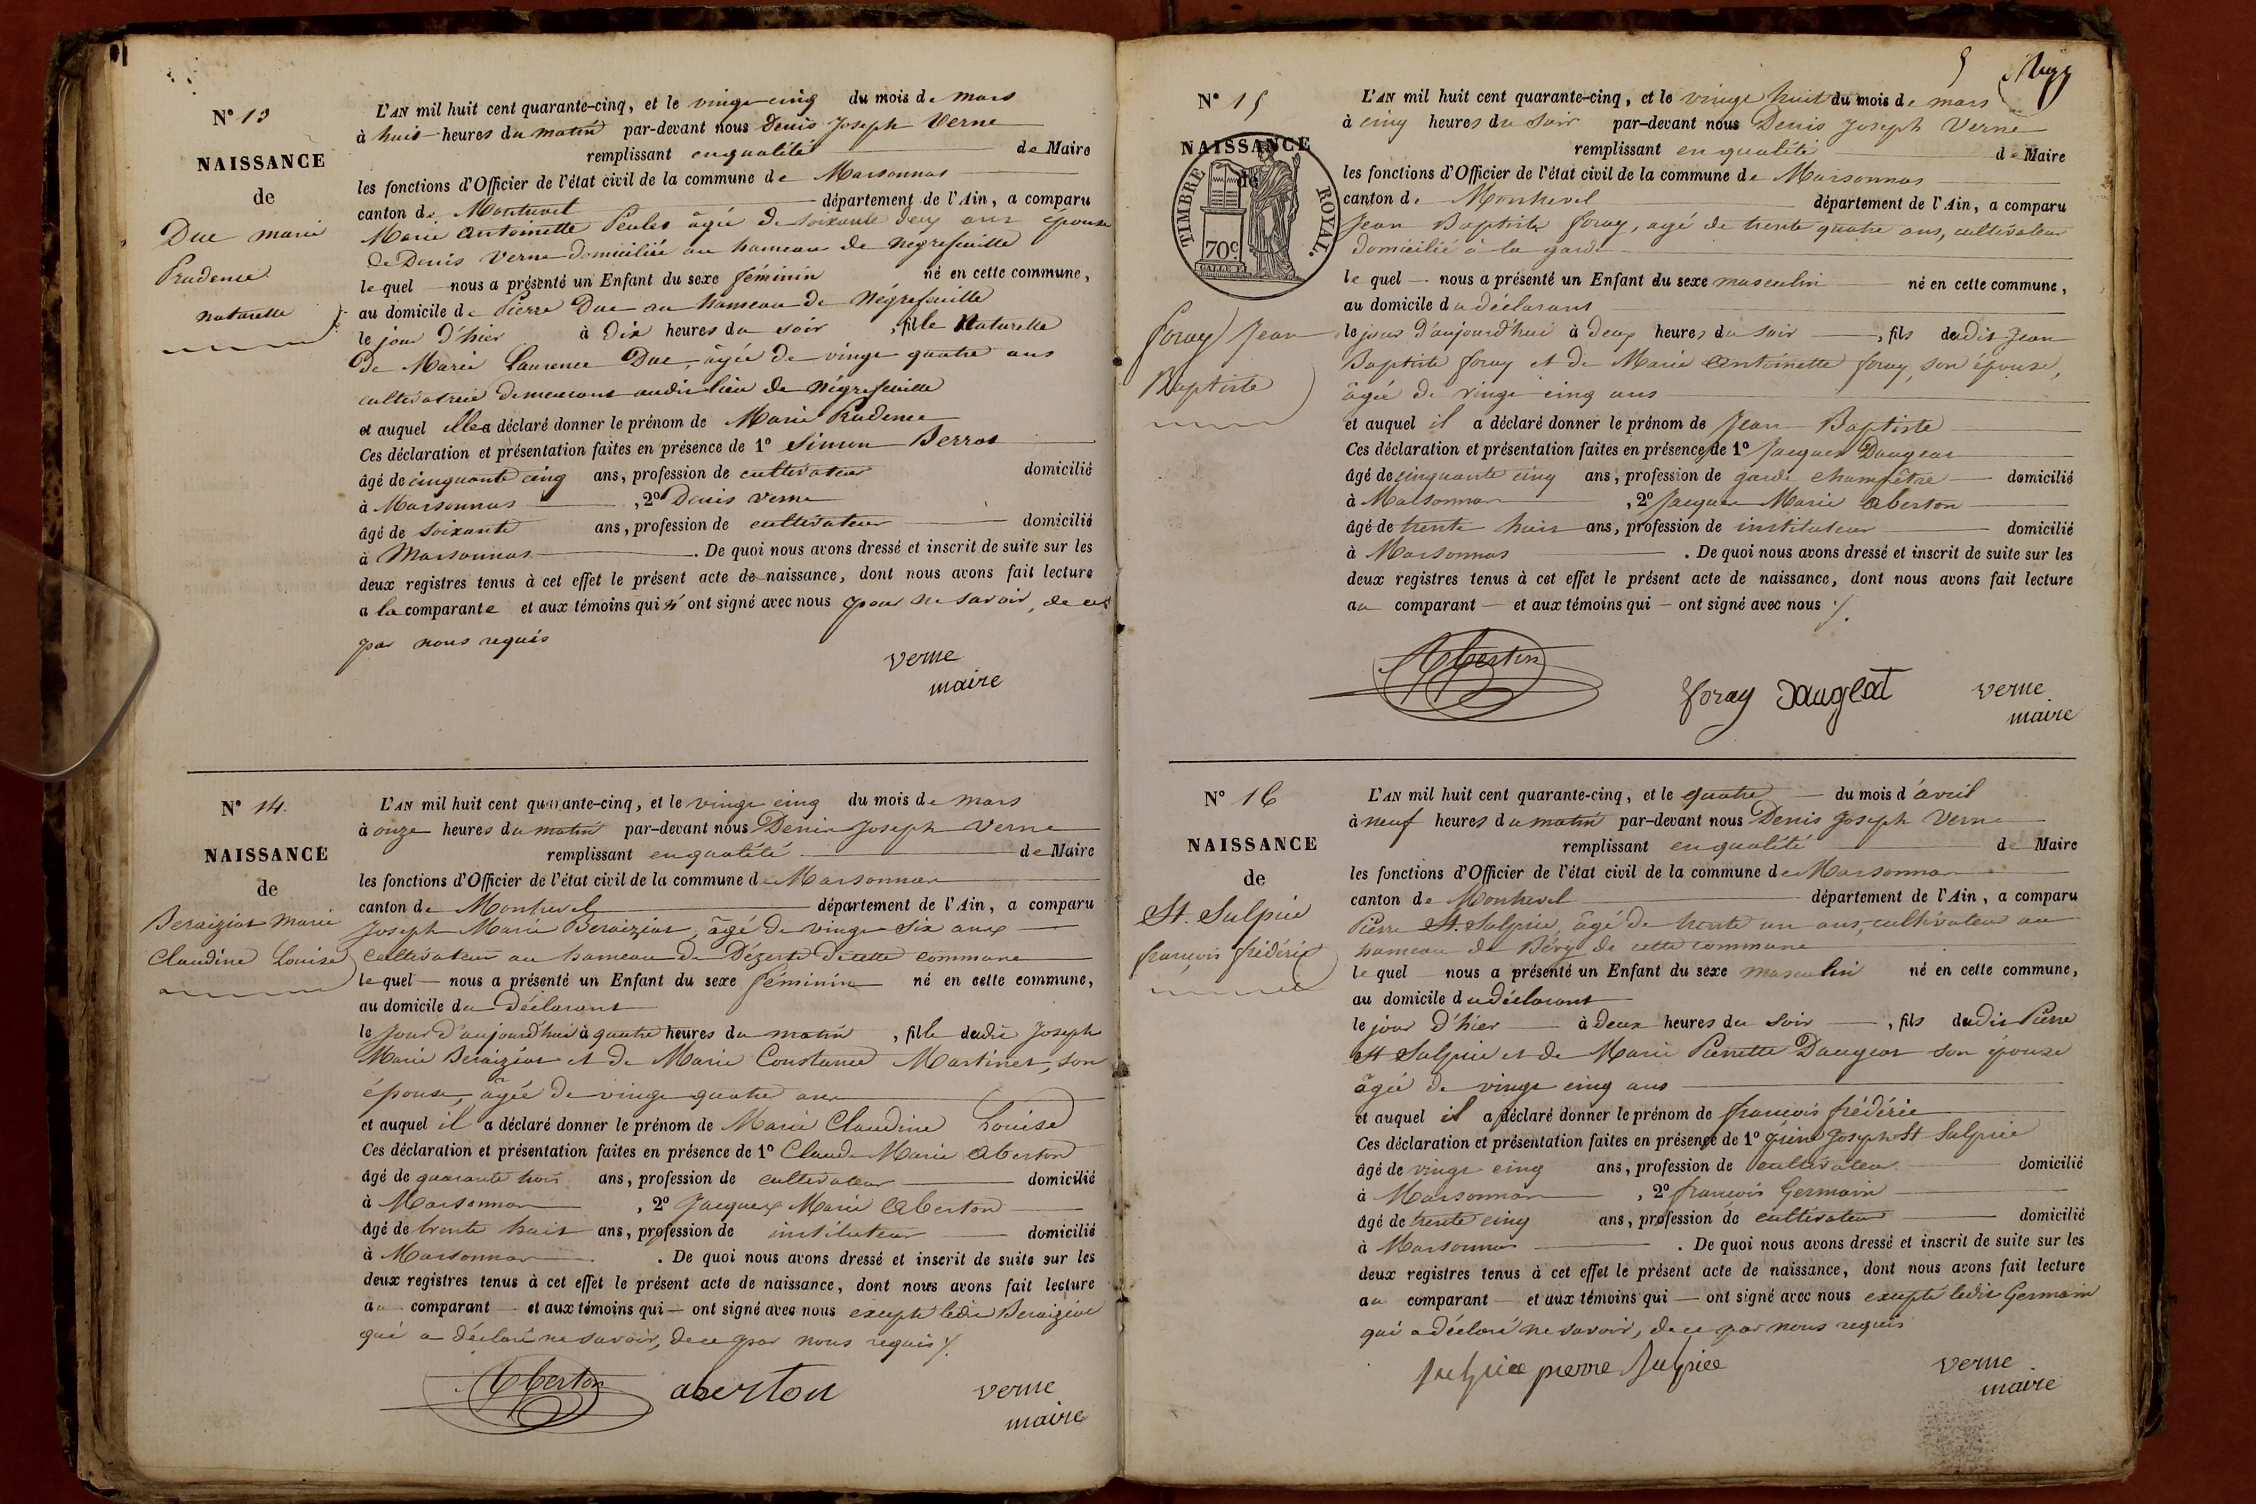 N° 13
NAISSANCE
de
Duc marie
Prudence
naturelle
L'AN mil huit cent quarante-cinq, et le vingt cinq du mois de mars
à huit heures du matin par-devant nous Denis Joseph Verne
remplissant en qualité de Maire
les fonctions d'Officier de l'état civil de la commune de Marsonnas
canton de Montrevel département de l'Ain, a comparu
Marie Antoinette âgée de soixante deux ans épouse
de Denis Verne domiciliée au hameau de Négrefeuille
lequel nous a présenté un Enfant du sexe féminin né en cette commune,
au domicile de Pierre Duc au hameau de Négrefeuille
le jour d'hier à Dix heures du soir, fille Naturelle
de Marie Laurence Duc, âgée de vingt quatre ans
cultivatrice demeurant audit lieu de Négrefeuille
et auquel elle a déclaré donner le prénom de Marie Prudence
Ces déclaration et présentation faites en présence de 1° Simon
âgé de cinquante cinq ans, profession de cultivateur domicilié
à Marsonnas, 2° Denis Verne
âgé de soixante ans, profession de cultivateur domicilié
à Marsonnas. De quoi nous avons dressé et inscrit de suite sur les
deux registres tenus à cet effet le présent acte de naissance, dont nous avons fait lecture
a la comparante et aux témoins qui n' ont signé avec nous pour ne savoir, de ce
par nous requis
verne
maire
N° 14.
NAISSANCE
de
Beraiziat Marie
Claudine Louise
L'AN mil huit cent quarante-cinq, et le vingt cinq du mois de mars
à onze heures du matin par-devant nous Denis Joseph Verne
remplissant en qualité de Maire
les fonctions d'Officier de l'état civil de la commune de Marsonnas
canton de Montrevel département de l'Ain, a comparu
Joseph Marie Beraiziat, âgé de vingt six ans
cultivateur au hameau de Dézerte de cette commune
lequel nous a présenté un Enfant du sexe féminin né en cette commune,
au domicile du Déclarant
le jour d'aujourd'hui à quatre heures du matin, fille dudit Joseph
Marie Beraiziat et de Marie Constance Martinet, son
épouse, âgée de vingt quatre ans
et auquel il a déclaré donner le prénom de Marie Claudine Louise
Ces déclaration et présentation faites en présence de 1° Claude Marie Aberton
âgé de quarante trois ans, profession de cultivateur domicilié
à Marsonnas, 2° Jacques Marie Aberton
âgé de trente huit ans, profession de instituteur domicilié
à Marsonnas. De quoi nous avons dressé et inscrit de suite sur les
deux registres tenus à cet effet le présent acte de naissance, dont nous avons fait lecture
au comparant et aux témoins qui ont signé avec nous excepté ledit Beraiziat
qui a déclaré ne savoir, de ce par nous requis
Aberton aberton verne
maire
5
N° 15
NAISSANCE
de
TIMBRE ROYAL.
70c.
foray Jean
Baptiste
L'AN mil huit cent quarante-cinq, et le vingt huit du mois de mars
à cinq heures du soir par-devant nous Denis Joseph Verne
remplissant en qualité de Maire
les fonctions d'Officier de l'état civil de la commune de Marsonnas
canton de Montrevel département de l'Ain, a comparu
Jean Baptiste foray, agé de trente quatre ans, cultivateur
domicilié à la garde
lequel nous a présenté un Enfant du sexe masculin né en cette commune,
au domicile du déclarant
le jour d'aujourd'hui à deux heures du soir, fils dudit Jean
Baptiste foray et de Marie Antoinette foray, son épouse,
âgée de vingt cinq ans
et auquel il a déclaré donner le prénom de Jean Baptiste
Ces déclaration et présentation faites en présence de 1° Jacques Daugeat
âgé de cinquante cinq ans, profession de garde champêtre domicilié
à Marsonnas, 2° Jacques Marie Aberton
âgé de trente huit ans, profession de instituteur domicilié
à Marsonnas. De quoi nous avons dressé et inscrit de suite sur les
deux registres tenus à cet effet le présent acte de naissance, dont nous avons fait lecture
au comparant et aux témoins qui ont signé avec nous
Aberton foray daugeat verne
maire
N° 16
NAISSANCE
de
St. Sulpice
françois frédéric
L'AN mil huit cent quarante-cinq, et le quatre du mois d'avril
à neuf heures du matin par-devant nous Denis Joseph Verne
remplissant en qualité de Maire
les fonctions d'Officier de l'état civil de la commune de Marsonnas
canton de Montrevel département de l'Ain, a comparu
Pierre St. Sulpice, âgé de trente un ans, cultivateur au
hameau de Béry de cette commune
lequel nous a présenté un Enfant du sexe masculin né en cette commune,
au domicile du déclarant
le jour d'hier à deux heures du soir, fils dudit Pierre
St Sulpice et de Marie Pierrette Daugeat son épouse
âgée de vingt cinq ans
et auquel il a déclaré donner le prénom de françois frédéric
Ces déclaration et présentation faites en présence de 1° Joseph St Sulpice
âgé de vingt cinq ans, profession de cultivateur domicilié
à Marsonnas, 2° françois Germain
âgé de trente cinq ans, profession de cultivateur domicilié
à Marsonnas. De quoi nous avons dressé et inscrit de suite sur les
deux registres tenus à cet effet le présent acte de naissance, dont nous avons fait lecture
au comparant et aux témoins qui ont signé avec nous excepté ledit Germain
qui a déclaré ne savoir, de ce par nous requis
Sulpice pierre Sulpice verne
maire